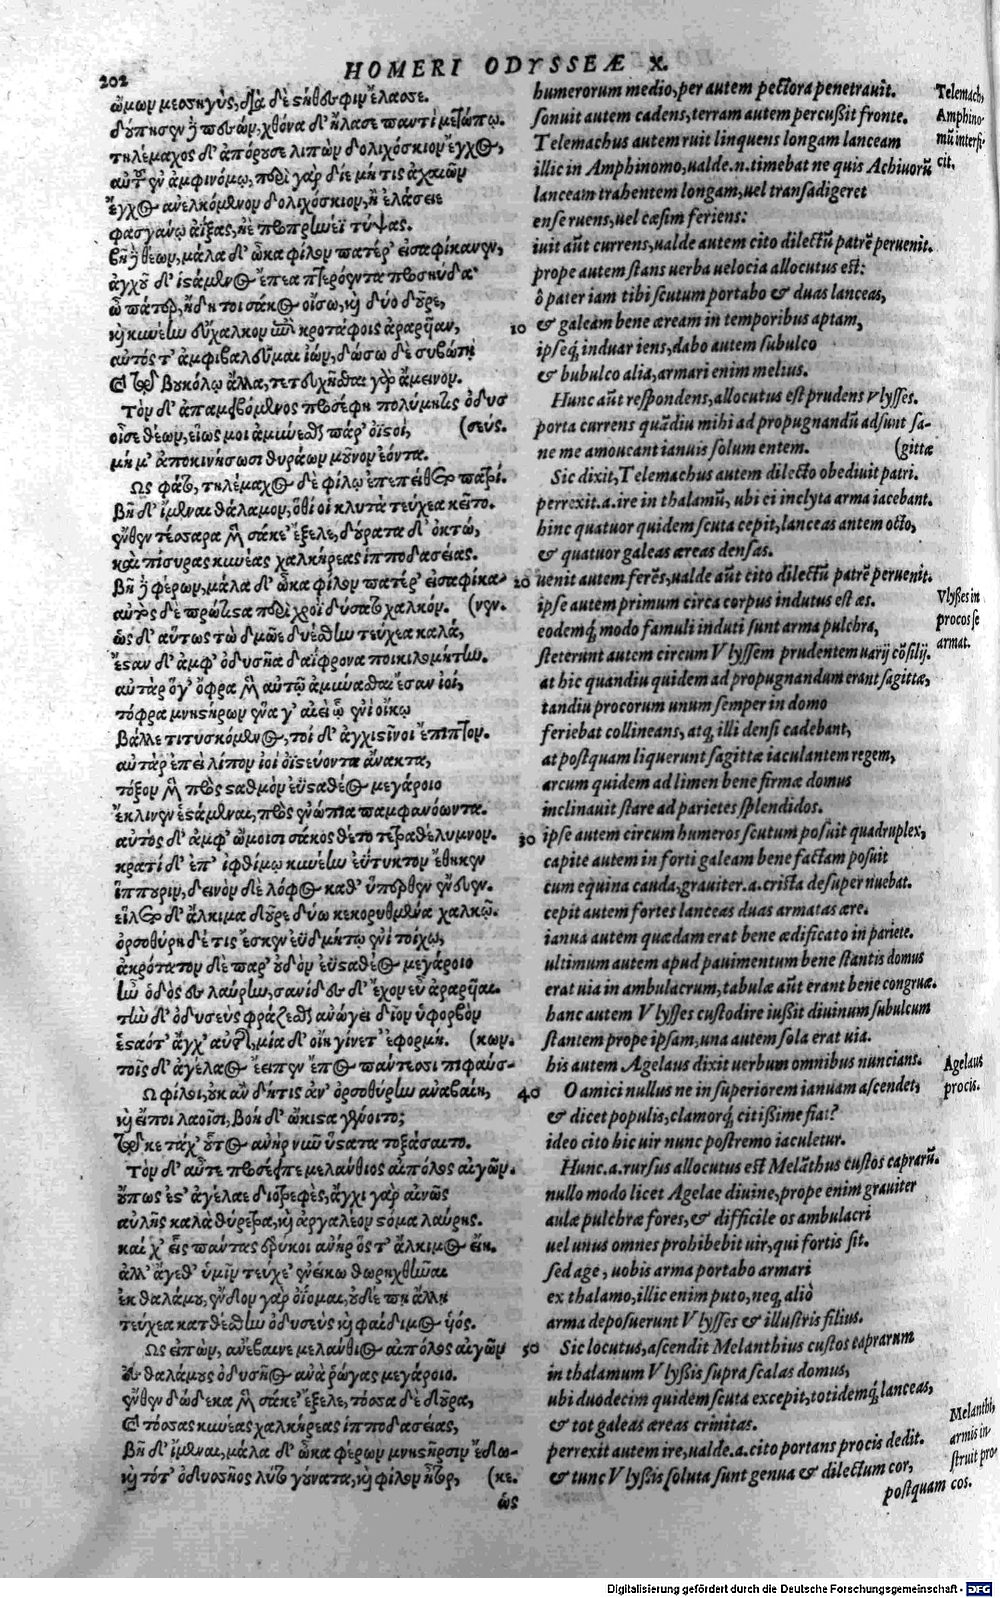 202
HOMERI ODYSSEÆ X.
ὤμων μεσσηγὺς, διὰ δὲ στήθεσφιν ἔλασσε.
δούπησεν δὲ πεσὼν, χθόνα δ' ἤλασε παντὶ μετώπῳ.
τηλέμαχος δ' ἀπόρουσε λιπὼν δολιχόσκιον ἔγχος,
αὐτοῦ ἐν ἀμφινόμῳ, περὶ γὰρ δίε μή τις ἀχαιῶν
ἔγχος ἀνελκόμενον δολιχόσκιον, ἢ ἐλάσειε
φασγάνῳ ἀΐξας, ἠὲ προπρινέϊ τύψας.
βῆ δὲ θέων, μάλα δ' ὦκα φίλον πατέρ' εἰσαφίκανεν,
ἀγχοῦ δ' ἱστάμενος ἔπεα πτερόεντα προσηύδα·
ὦ πάτερ, ἤδη τοι σάκος οἴσω, καὶ δύο δοῦρε,
καὶ κυνέην εὔχαλκον ἐπὶ κροτάφοις ἀραρυῖαν,
αὐτός τ' ἀμφιβαλεῦμαι ἰὼν, δώσω δὲ συβώτῃ
καὶ τῷ βουκόλῳ ἄλλα, τετευχῆσθαι γὰρ ἄμεινον.
Τὸν δ' ἀπαμειβόμενος προσέφη πολύμητις ὀδυσ
οἶσε θέων, εἵως μοι ἀμύνεσθαι πάρ' ὀϊστοὶ, (σεύς.
μή μ' ἀποκινήσωσι θυράων μοῦνον ἐόντα.
Ως φάτο, τηλέμαχος δὲ φίλῳ ἐπεπείθετο πατρί.
βῆ δ' ἴμεναι θάλαμον, ὅθι οἱ κλυτὰ τεύχεα κεῖτο.
ἔνθεν τέσσαρα μὲν σάκε' ἔξελε, δούρατα δ' ὀκτώ,
καὶ πίσυρας κυνέας χαλκήρεας ἱπποδασείας.
βῆ δὲ φέρων, μάλα δ' ὦκα φίλον πατέρ' εἰσαφίκα-
αὐτὸς δὲ πρώτιστα περὶ χροῒ δύσατο χαλκόν. (νεν.
ὣς δ' αὔτως τὼ δμῶε δυέσθην τεύχεα καλά,
ἔσταν δ' ἀμφ' ὀδυσῆα δαΐφρονα ποικιλομήτην.
αὐτὰρ ὅγ' ὄφρα μὲν αὐτῷ ἀμύνασθαι ἔσαν ἰοὶ,
τόφρα μνηστήρων ἕνα γ' αἰεὶ ᾧ ἐνὶ οἴκῳ
βάλλε τιτυσκόμενος, τοὶ δ' ἀγχιστῖνοι ἔπιπτον.
αὐτὰρ ἐπεὶ λίπον ἰοὶ ὀϊστεύοντα ἄνακτα,
τόξον μὲν πρὸς σταθμὸν ἐϋσταθέος μεγάροιο
ἔκλινεν ἑστάμεναι, πρὸς ἐνώπια παμφανόωντα.
αὐτὸς δ' ἀμφ' ὤμοισι σάκος θέτο τετραθέλυμνον.
κρατὶ δ' ἐπ' ἰφθίμῳ κυνέην εὔτυκτον ἔθηκεν
ἵππουριν, δεινὸν δὲ λόφος καθ' ὕπερθεν ἔνευεν.
εἵλετο δ' ἄλκιμα δοῦρε δύω κεκορυθμένα χαλκῷ.
ὀρσοθύρη δέ τις ἔσκεν ἐϋδμήτῳ ἐνὶ τοίχῳ,
ἀκρότατον δὲ παρ' οὐδὸν ἐϋσταθέος μεγάροιο
ἦν ὁδὸς ἐς λαύρην, σανίδες δ' ἔχον εὖ ἀραρυῖαι.
τὴν δ' ὀδυσεὺς φράζεσθαι ἀνώγει δῖον ὑφορβὸν
ἑσταότ' ἄγχ' αὐτῆς, μία δ' οἴη γίνετ' ἐφορμή. (κων.
τοῖς δ' ἀγέλαος ἔειπεν ἔπος πάντεσσι πιφαύσ-
Ω φίλοι, οὐκ ἂν δή τις ἀν' ὀρσοθύρην ἀναβαίη,
καὶ εἴποι λαοῖσι, βοὴ δ' ὤκιστα γένοιτο;
τῷ κε τάχ' οὗτος ἀνὴρ νῦν ὕστατα τοξάσαιτο.
Τὸν δ' αὖτε προσέειπε μελάνθιος αἰπόλος αἰγῶν.
οὔπως ἔστ' ἀγέλαε διοτρεφὲς, ἄγχι γὰρ αἰνῶς
αὐλῆς καλὰ θύρετρα, καὶ ἀργαλέον στόμα λαύρης.
καί χ' εἷς πάντας ἐρύκοι ἀνὴρ ὅς τ' ἄλκιμος εἴη.
ἀλλ' ἄγεθ' ὑμῖν τεύχε' ἐνείκω θωρηχθῆναι
ἐκ θαλάμου, ἔνδον γὰρ ὀΐομαι, οὐδέ πη ἄλλη
τεύχεα κατθέσθην ὀδυσεὺς καὶ φαίδιμος υἱός.
Ως εἰπὼν, ἀνέβαινε μελάνθιος αἰπόλος αἰγῶν
ἐς θαλάμους ὀδυσῆος ἀνὰ ῥῶγας μεγάροιο.
ἔνθεν δώδεκα μὲν σάκε' ἔξελε, τόσσα δὲ δοῦρα,
καὶ τόσσας κυνέας χαλκήρεας ἱπποδασείας,
βῆ δ' ἴμεναι, μάλα δ' ὦκα φέρων μνηστῆρσιν ἔδω-
καὶ τότ' ὀδυσσῆος λύτο γούνατα, καὶ φίλον ἦτορ, (κε.
ὡς
humerorum medio, per autem pectora penetrauit.
sonuit autem cadens, terram autem percußit fronte.
Telemachus autem ruit linquens longam lanceam
illic in Amphinomo, ualde.n.timebat ne quis Achiuorũ
lanceam trahentem longam, uel transadigeret
ense ruens, uel cæsim feriens:
iuit aũt currens, ualde autem cito dilectũ patrẽ peruenit.
prope autem stans uerba uelocia allocutus est:
ô pater iam tibi scutum portabo & duas lanceas,
10 & galeam bene æream in temporibus aptam,
ipseq́; induar iens, dabo autem subulco
& bubulco alia, armari enim melius.
Hunc aũt respondens, allocutus est prudens Vlysses.
porta currens quãdiu mihi ad propugnandũ adsunt sa-
ne me amoueant ianuis solum entem. (gittæ
Sic dixit, Telemachus autem dilecto obediuit patri.
perrexit.a.ire in thalamũ, ubi ei inclyta arma iacebant.
hinc quatuor quidem scuta cepit, lanceas antem octo,
& quatuor galeas æreas densas.
20 uenit autem ferẽs, ualde aũt cito dilectũ patrẽ peruenit.
ipse autem primum circa corpus indutus est æs.
eodemq́; modo famuli induti sunt arma pulchra,
steterunt autem circum Vlyssem prudentem uarij cõsilij.
at hic quandiu quidem ad propugnandum erant sagittæ,
tandiu procorum unum semper in domo
feriebat collineans, atq; illi densi cadebant,
at postquam liquerunt sagittæ iaculantem regem,
arcum quidem ad limen bene firmæ domus
inclinauit stare ad parietes splendidos.
30 ipse autem circum humeros scutum posuit quadruplex,
capite autem in forti galeam bene factam posuit
cum equina cauda, grauiter.a.crista desuper nuebat.
cepit autem fortes lanceas duas armatas ære.
ianua autem quædam erat bene ædificato in pariete.
ultimum autem apud pauimentum bene stantis domus
erat uia in ambulacrum, tabulæ aũt erant bene congruæ.
hanc autem Vlysses custodire iußit diuinum subulcum
stantem prope ipsam, una autem sola erat uia.
his autem Agelaus dixit uerbum omnibus nuncians.
40 O amici nullus ne in superiorem ianuam ascendet,
& dicet populis, clamorq́; citißime fiat?
ideo cito hic uir nunc postremo iaculetur.
Hunc.a.rursus allocutus est Melãthus custos caprarũ.
nullo modo licet Agelae diuine, prope enim grauiter
aulæ pulchræ fores, & difficile os ambulacri
uel unus omnes prohibebit uir, qui fortis sit.
sed age, uobis arma portabo armari
ex thalamo, illic enim puto, neq; aliò
arma deposuerunt Vlysses & illustris filius.
50 Sic locutus, ascendit Melanthius custos caprarum
in thalamum Vlyßis supra scalas domus,
ubi duodecim quidem scuta excepit, totidemq́; lanceas,
& tot galeas æreas crinitas.
perrexit autem ire, ualde.a.cito portans procis dedit.
& tunc Vlyßis soluta sunt genua & dilectum cor,
postquam
Telemach,
Amphino-
mũ interfi-
cit.
Vlysses in
procos se
armat.
Agelaus
procis.
Melanthi,
armis in-
struit pro-
cos.
Digitalisierung gefördert durch die Deutsche Forschungsgemeinschaft - DFG